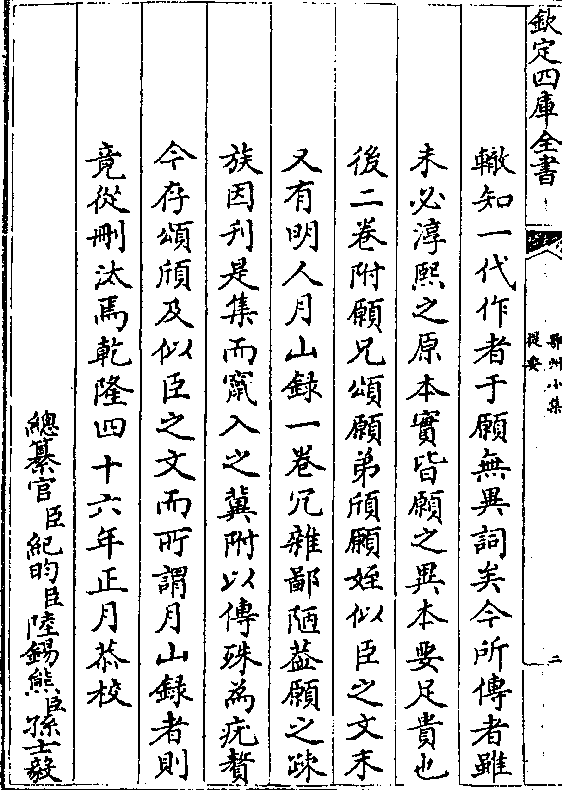 欽定四庫全書
鄂州小集
提要
二
轍知一代作者于願無異詞矣今所傳者雖
未必淳熙之原本實皆願之異本要足貴也
後二卷附願兄頌願弟頎願姪似臣之文末
又有明人月山錄一卷冗雜鄙陋葢願之疎
族因刋是集而竄入之冀附以傳殊為疣贅
今存頌頎及似臣之文而所謂月山錄者則
竟從刪汰焉乾隆四十六年正月恭校
總纂官臣紀昀臣陸錫熊臣孫士毅